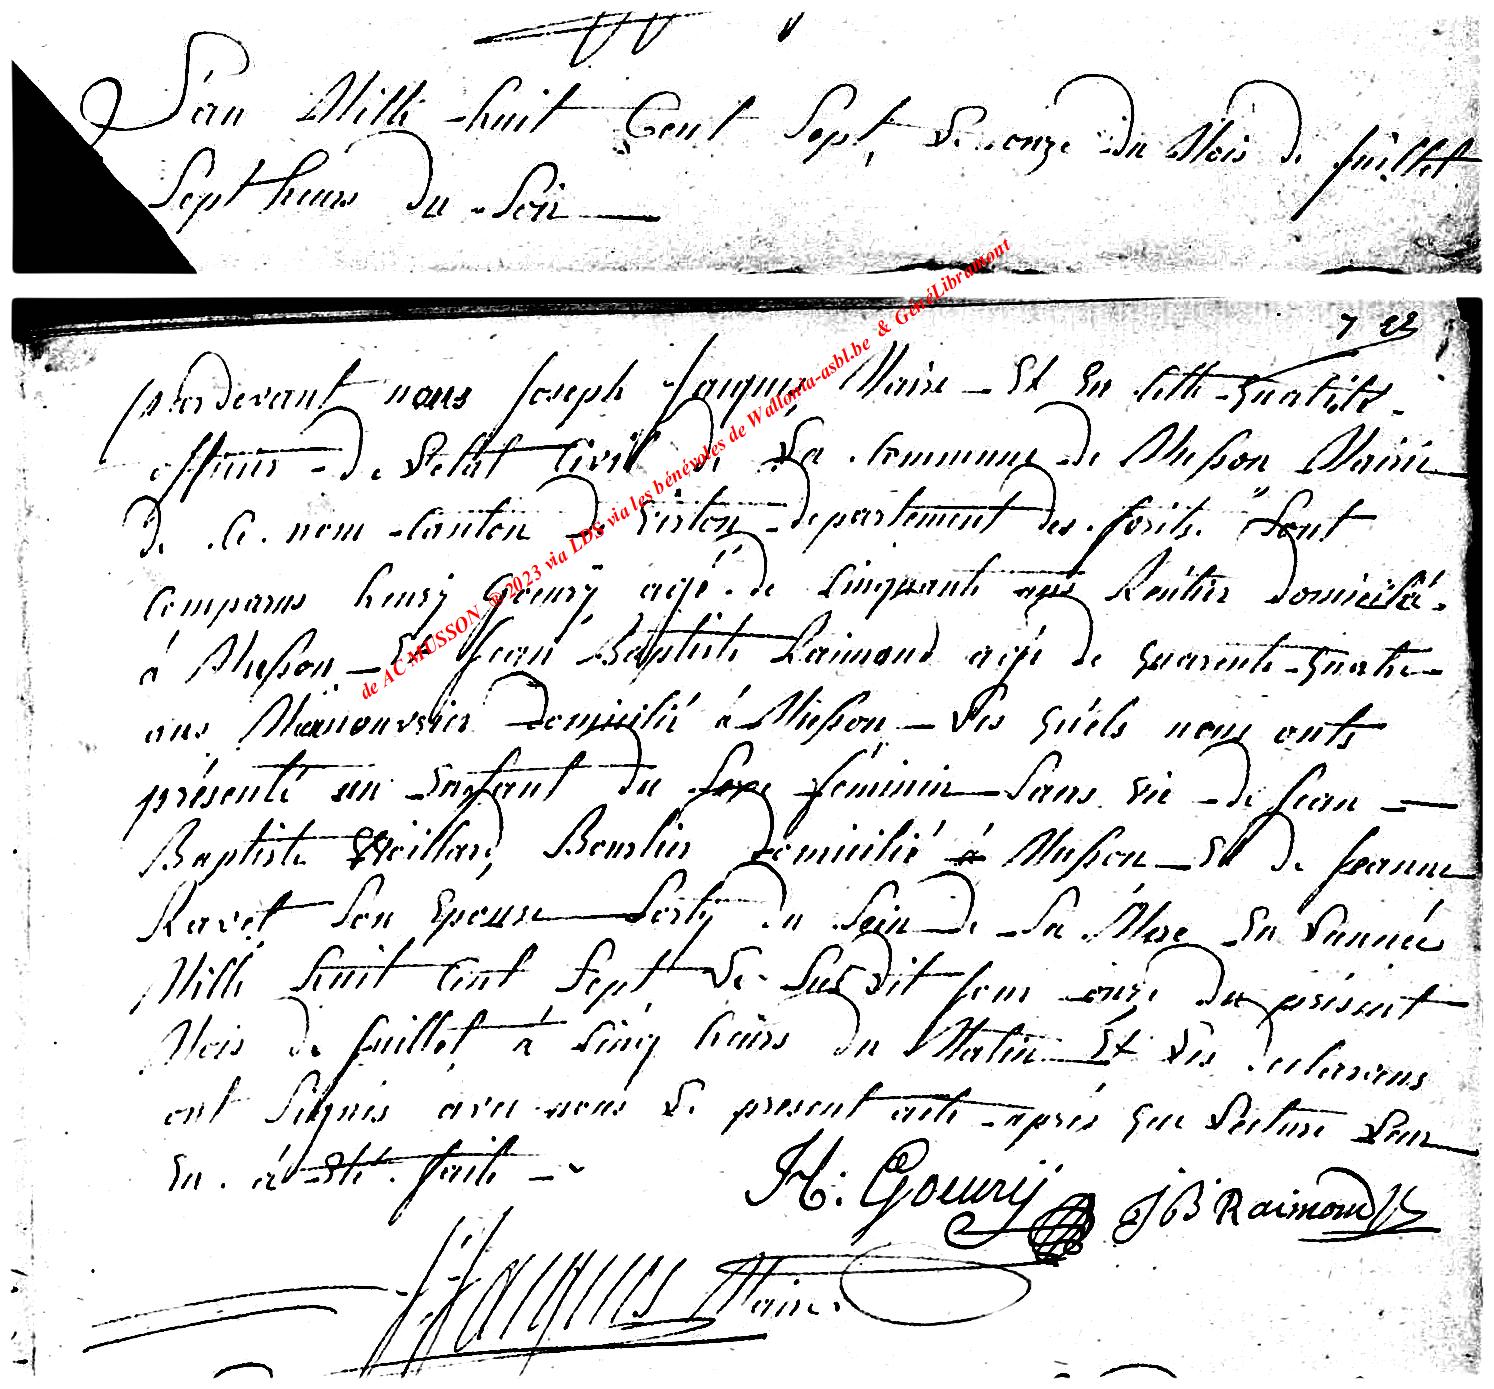 L'an Mille huit Cent Sept, Le onze du Mois de Juillet
Sept heurs du Soir
7 22
pardevant nous Joseph Jacques Maire Et En Cette qualité
officier de L'etat Civil de La Commune de Musson Mairie
de Ce nom Canton de Virton departement des forêts Sont
Comparus henrÿ Gourÿ agé de Cinquante ans Rentier domicilié
à Musson Et Jean Baptiste Raimond agé de quarente quatre
ans Manouvrier domicilié à Musson Les quels nous onts
présenté un Enfant du Sexe féminin Sans vie de Jean
Baptiste domicilié à Musson Et de Jeanne
Ravet Son Epouse Sorty du Sein de Sa Mere En L'année
Mille huit Cent Sept Le Susdit Jour onze du présent
Mois de Juillet à Cinq heurs du Matin Et Les declarans
ont Signés avec nous Le present acte après que Lecture Leur
En à Eté faite
H: Gourÿ JB Raimond
JJacques Maire
de AC MUSSON ® 2023 via LDS via les bénévoles de Wallonia-asbl.be & GénéLibramont